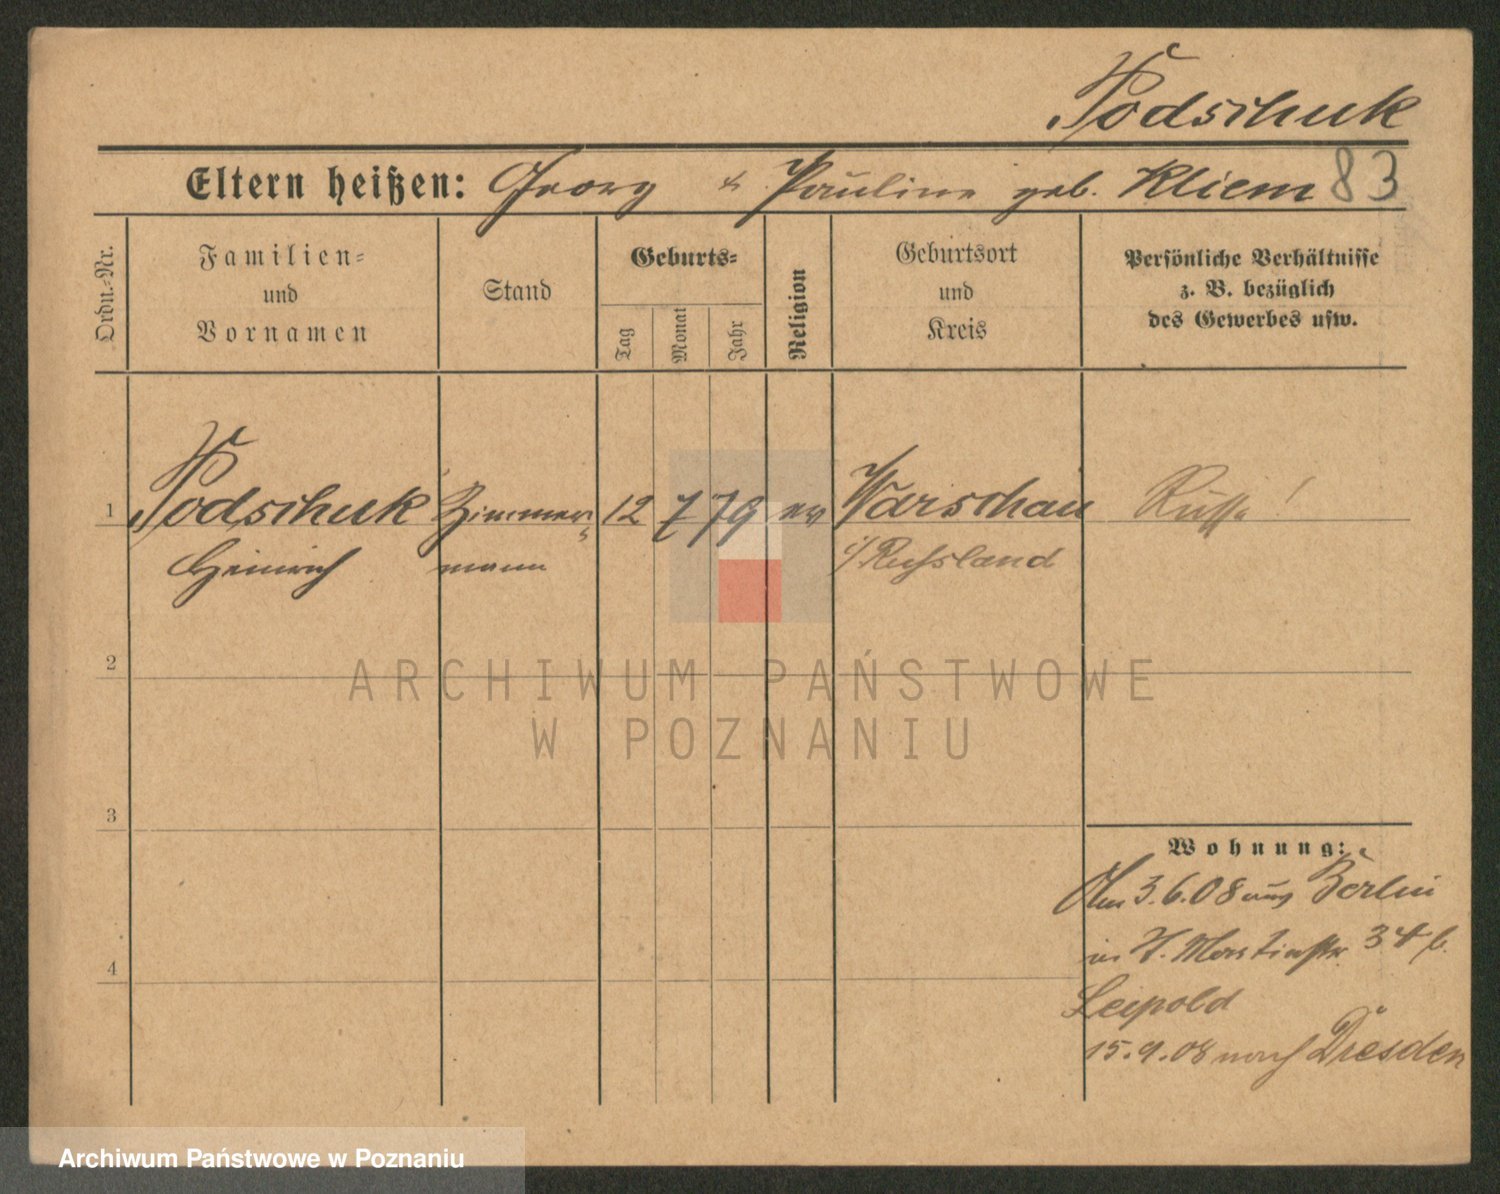 Podschuk
Eltern heißen: Georg & Pauline geb. Kliem 83
Ordn.-Nr.
Familien-
und
Vornamen
Stand
Geburts-
Tag
Monat
Jahr
Religion
Geburtsort
und
Kreis
Persönliche Verhältnisse
z. B. bezüglich
des Gewerbes usw.
1 Podschuk Zimmer- 12 7 79 ev Warschau Russe!
Heinrich mann i/Russland
2
3
4
Wohnung:
Am 3.6.08 aus Berlin
in St. Martinstr. 34 b.
Leipold
15.9.08 nach Dresden
ARCHIWUM PAŃSTWOWE
W POZNANIU
Archiwum Państwowe w Poznaniu